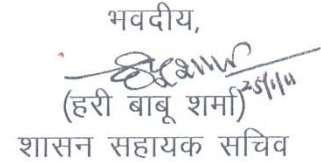 भवदीय,
25/1/11
(हरी बाबू शर्मा)
शासन सहायक सचिव